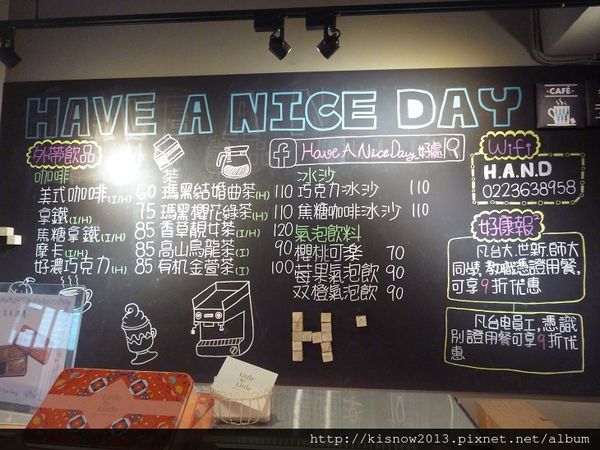 HAVE A NICE DAY
外帶飲品
咖啡
美式咖啡(I/H) 60
拿鐵(I/H) 75
焦糖拿鐵(I/H) 85
摩卡(I/H) 85
好濃巧克力(H) 85
茶
瑪黑結婚曲茶(H) 110
瑪黑櫻花綠茶(H) 110
香草靚女茶(I/H) 120
高山烏龍茶(I) 90
有机金萱茶(I) 100
f Have A Nice Day 好處
冰沙
巧克力冰沙 110
焦糖咖啡冰沙 110
氣泡飲料
櫻桃可樂 70
莓果氣泡飲 90
双橙氣泡飲 90
H
·CAFÉ·
WiFi
H.A.N.D
0223638958
好康報
凡台大.世新.師大
同學,教職憑證用餐,
可享9折优惠
凡台电員工,憑識
別證用餐可享9折优
惠
Little
by
Little
http://kisnow2013.pixnet.net/album